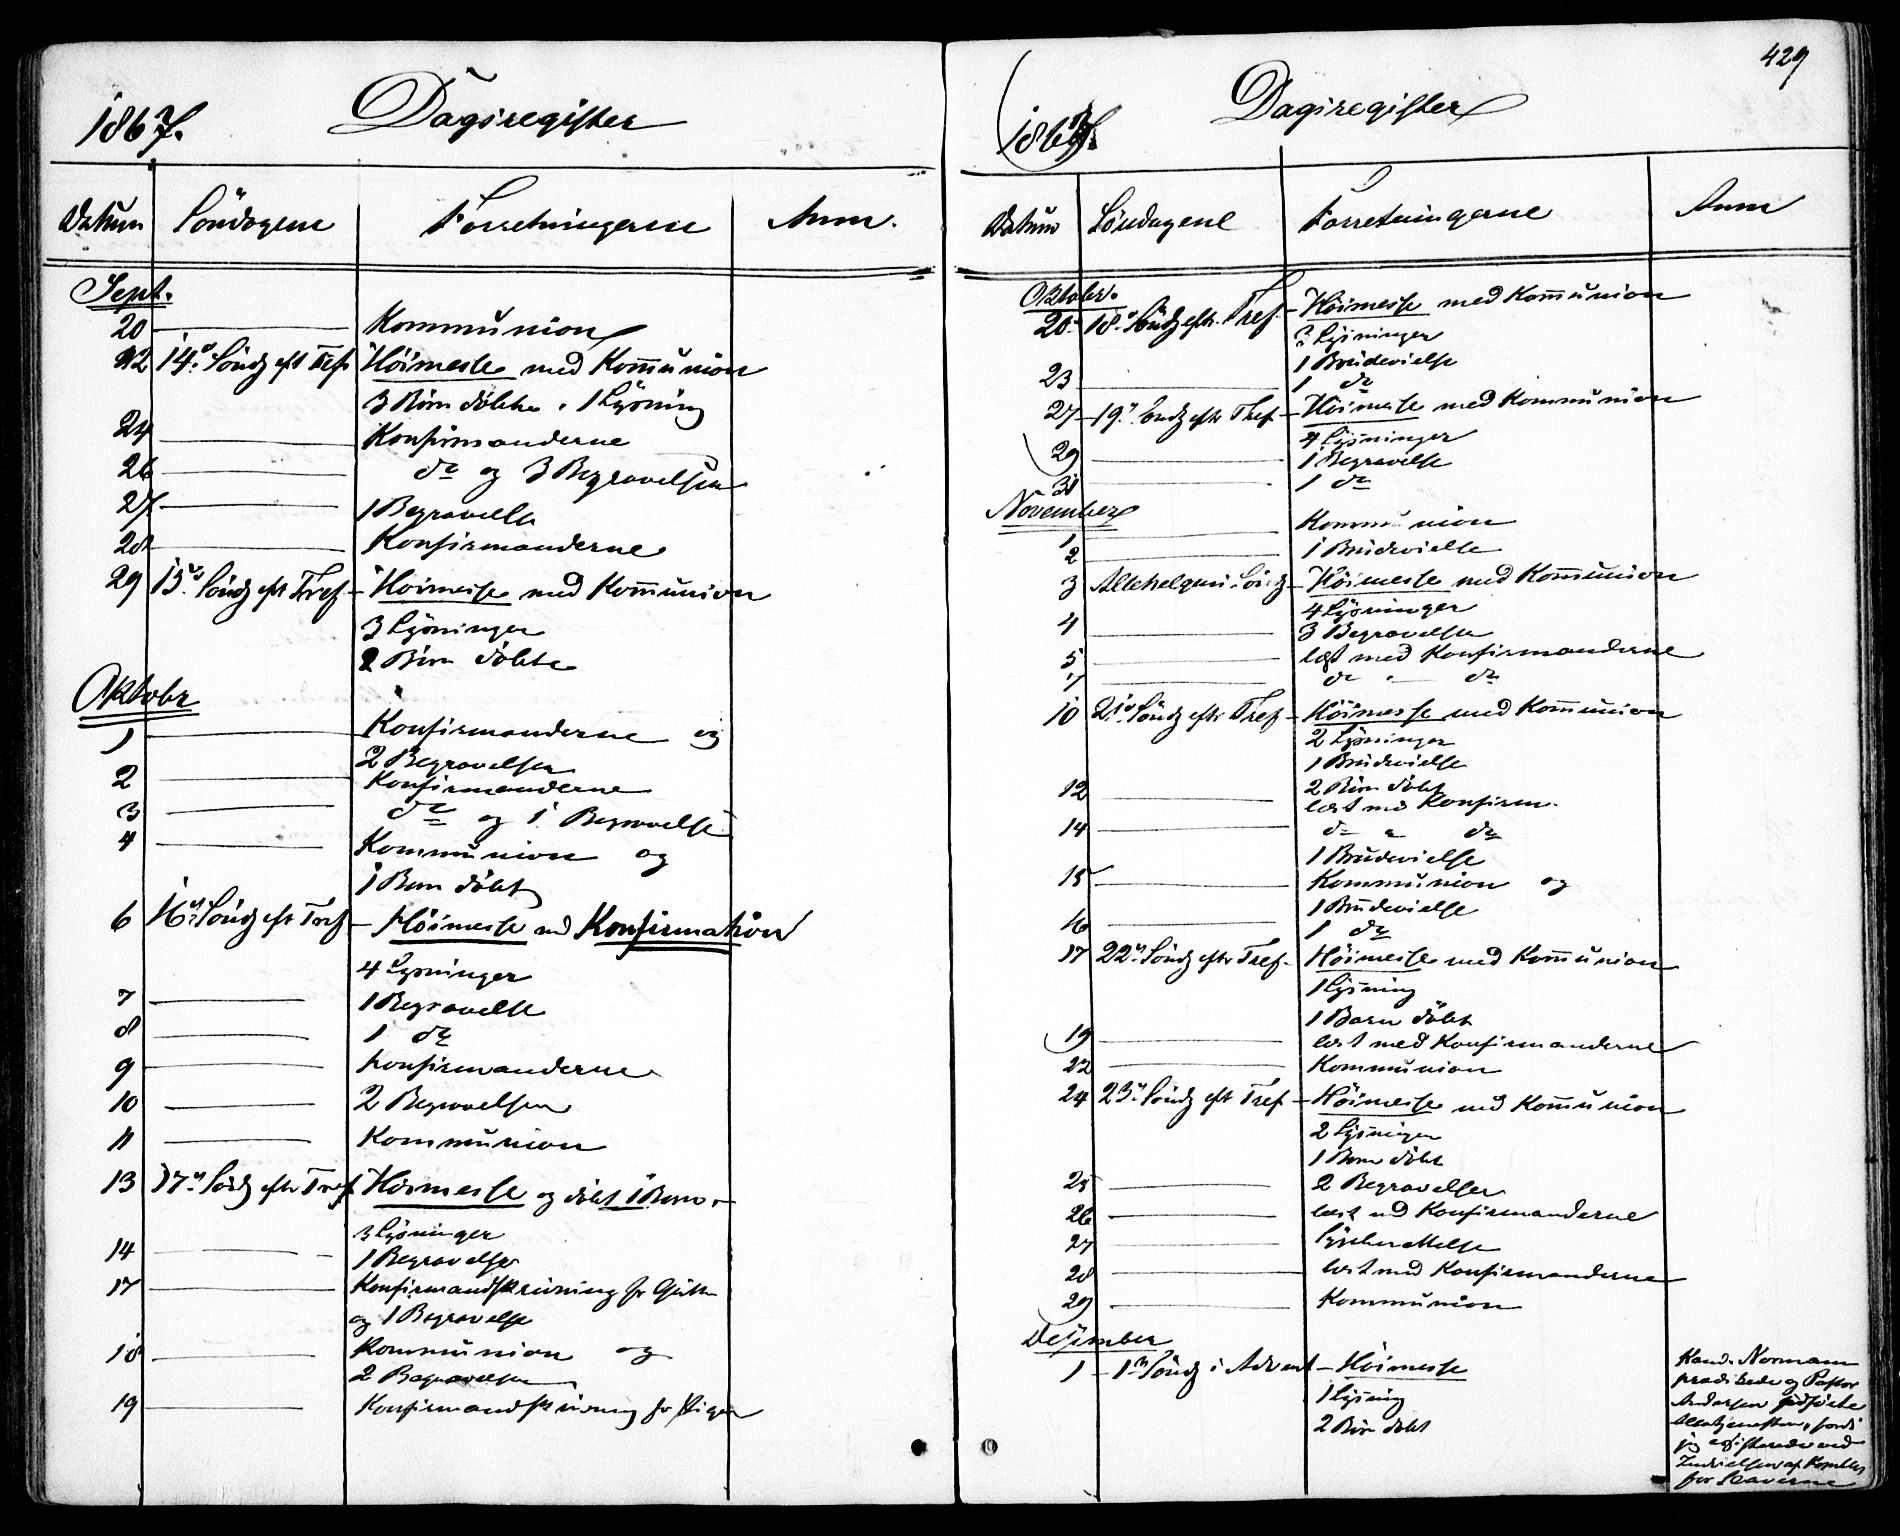 1867.
Dagsregister
Datum Söndagene Forretningerne Anm.
Sept.
20 Kommunion
22 14de Söndg eft Tref. Höimesse med Kommunion
3 Börn döbte. 1 Lysning
24 Konfirmanderne
26 do og 3 Begravelser
27 1 Begravelse
28 Konfirmanderne
29 15de Söndg eft Tref. – Höimesse med Kommunion
3 Lysninger
2 Börn döbte
Oktobr
1 Konfirmanderne og
2 Begravelser
2 Konfirmanderne
3 do og 1 Begravelse
4 Kommunion og
1 Barn döbt
6 16de Söndg eft Tref – Höimesse med Konfirmation
4 Lysninger
7 1 Begravelse
8 1 do
9 Konfirmanderne
10 2 Begravelser
11 Kommunion
13 17de Söndg eftr Tref Höimesse og döbt 1 Barn.
3 Lysninger
14 1 Begravelse
17 Konfirmandskrivning for Gutter
og 1 Begravelse
18 Kommunion og
2 Begravelser
19 Konfirmandskrivning for Piger
429
1867.
Dagsregister
Datum Söndagene Forretningerne Anm
Oktobr.
20. 18de Söndg eftr. Tref. – Höimesse med Kommunion
3 Lysninger
1 Brudevielse
23 1 do
27 – 19de Söndg eftr Tref – Höimesse med Kommunion
4 Lysninger
29 1 Begravelse
31 1 do
November
1 Kommunion
2 1 Brudevielse
3 Allehelgens Söndg – Höimesse med Kommunion
4 Lysninger
4 3 Begravelser
5 læst med Konfirmanderne
7 do " do
10 21de Söndg eftr Tref – Höimesse med Kommunion
2 Lysninger
1 Brudevielse
2 Börn döbt
12 læst med Konfirm.
14 do " do
1 Brudevielse
15 Kommunion og
1 Brudevielse
16 1 do
17 22de Söndg eftr Tref. – Höimesse med Kommunion
1 Lysning
1 Barn döbt
19 læst med Konfirmanderne
22 Kommunion
24 23de Söndg eft Tref – Höimesse med Kommunion
2 Lysninger
1 Barn döbt
25 2 Begravelser
26 læst med Konfirmanderne
27
28 læst med Konfirmanderne
29 Kommunion
Desember
1 – 1ste Söndg i Advent – Höimesse
1 Lysning
2 Börn döbt
Kand. Normann
prædikede og Pastor
Andersen udförte
Altertjenesten, fordi
jeg
af
for Slaverne